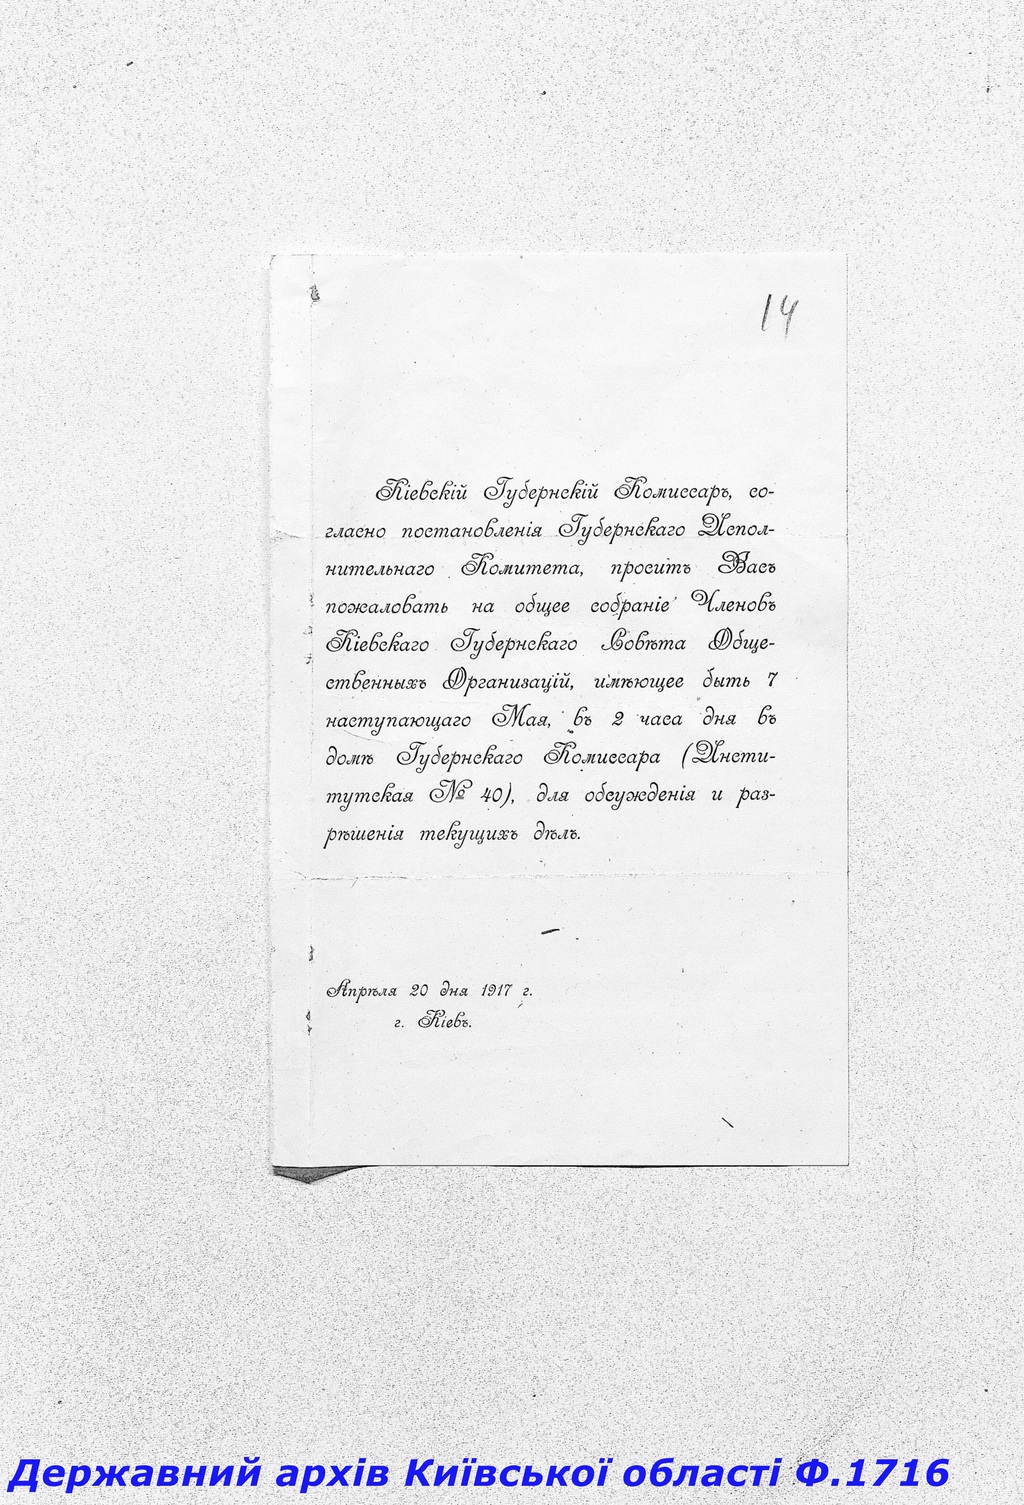 14
Кіевскій Губернскій Комиссаръ, со-
гласно постановленія Губернскаго Испол-
нительнаго Комитета, проситъ Васъ
пожаловать на общее собраніе Членовъ
Кіевскаго Губернскаго Совѣта Обще-
ственныхъ Организацій, имѣющее быть 7
наступающаго Мая, въ 2 часа дня въ
домѣ Губернскаго Комиссара (Инсти-
тутская № 40), для обсужденія и раз-
рѣшенія текущихъ дѣлъ.
Апрѣля 20 дня 1917 г.
г. Кіевъ.
Державний архів Київської області Ф.1716